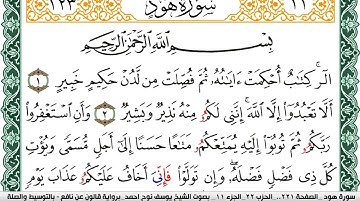 ١٢٣ سُورَةُ هُودٍ ١١
بِسْمِ اللَّهِ الرَّحْمَٰنِ الرَّحِيمِ
الٓر كِتَٰبٌ اُحْكِمَتَ اٰيَٰتُهُۥ ثُمَّ فُصِّلَتْ مِن لَّدُنْ حَكِيمٍ خَبِيرٍ ١
أَلَّا تَعْبُدُوٓاْ إِلَّا اَللَّهَ إِنَّنِے لَكُمُۥ مِنْهُ نَذِيرٌ وَبَشِيرٌ ٢ وَأَنِ اِسْتَغْفِرُواْ
رَبَّكُمُۥ ثُمَّ تُوبُوٓاْ إِلَيْهِ يُمَتِّعْكُمُۥ مَتَٰعًا حَسَنًا إِلَىٰٓ أَجَلٖ مُّسَمّٗى وَيُوتِ
كُلَّ ذِے فَضْلٖ فَضْلَهُۥ وَإِن تَوَلَّوْاْ فَإِنِّيَ أَخَافُ عَلَيْكُمُۥ عَذَابَ يَوْمٖ
سورة هود .. الصفحة ٢٢١.. الحزب ٢٢ الجزء ١١ بصوت الشيخ يوسف نوح احمد برواية قالون عن نافع - بالتوسيط والصلة